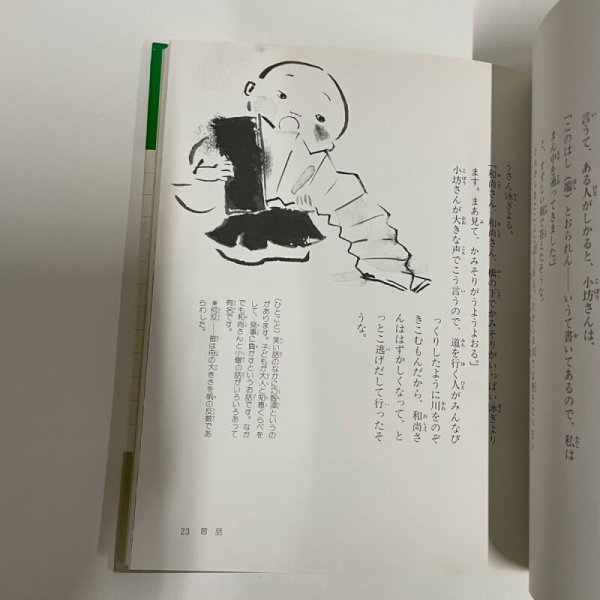 言うて、ある人がしかると、小坊さんは、
「このはし（端）とおられん――いうて書いてあるので、私は
まん中を通ってきました」
と、すずしい顔で答えたそうな。
うさん泳ぎよる。
「和尚さん、和尚さん、橋の下でかみそりがいっぱい泳ぎより
ます。まあ見て、かみそりがうようよおる。」
小坊さんが大きな声でこう言うので、道を行く人がみんなび
っくりしたように川をのぞ
きこむもんだから、和尚さ
んははずかしくなって、と
っとこ逃げだして行ったそ
うな。
〈ひとこと〉笑い話のなかに巧智譚というの
があります。子どもが大人と知恵くらべを
して、見事に負かすというお話です。なか
でも和尚さんと小僧の話がいろいろあって
有名です。
＊何反……昔は舟の大きさを帆の反数であ
らわした。
23 昔話